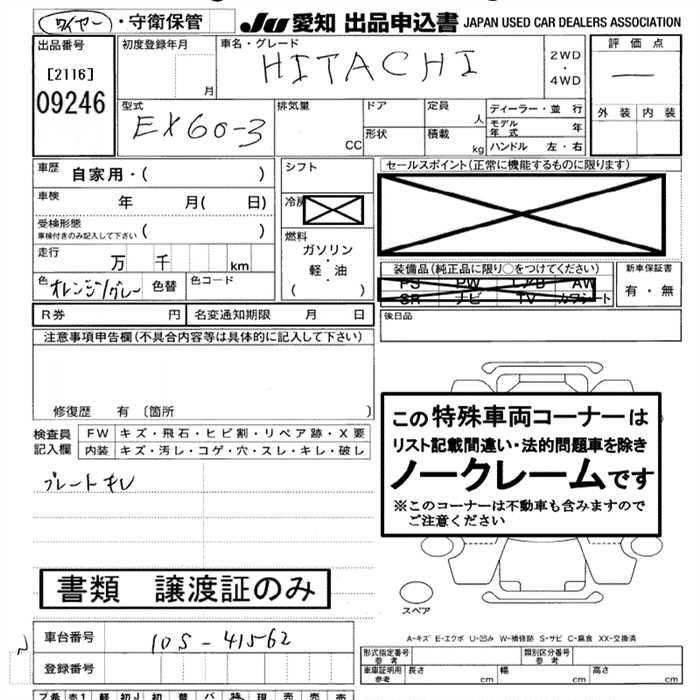 ワイヤー・守衛保管
JU 愛知 出品申込書 JAPAN USED CAR DEALERS ASSOCIATION
出品番号
[2116]
09246
初度登録年月
月
車名・グレード
HITACHI
2WD
・
4WD
評価点
—
外装 内装
型式
EX60-3
排気量
CC
ドア
形状
定員
人
積載
kg
ディーラー・並行
モデル年式
年
ハンドル 左・右
車歴 自家用・( )
車検 年 月( 日)
受検形態
車検付きのみ記入して下さい ( )
走行 万 千 km
色 オレンジ/グレー 色替 色コード
シフト
冷房
燃料
ガソリン
・
軽・油
( )
セールスポイント(正常に機能するものに限ります)
装備品(純正品に限り○をつけてください)
PS PW エアB AW
SR ナビ TV カワシート
新車保証書
有・無
R券 円 名変通知期限 月 日
後日品
注意事項申告欄(不具合内容等は具体的に記入して下さい)
修復歴 有〔箇所 〕
検査員記入欄
FW キズ・飛石・ヒビ割・リペア跡・X要
内装 キズ・汚レ・コゲ・穴・スレ・キレ・破レ
プレートキレ
この特殊車両コーナーは
リスト記載間違い・法的問題車を除き
ノークレームです
※このコーナーは不動車も含みますので
ご注意ください
書類 譲渡証のみ
スペア
車台番号 10S-41562
登録番号
A-キズ E-エクボ U-凹み W-補修跡 S-サビ C-腐食 XX-交換済
形式指定番号
参考
類別区分番号
参考
車庫証明用
参考
長さ cm 幅 cm 高さ cm